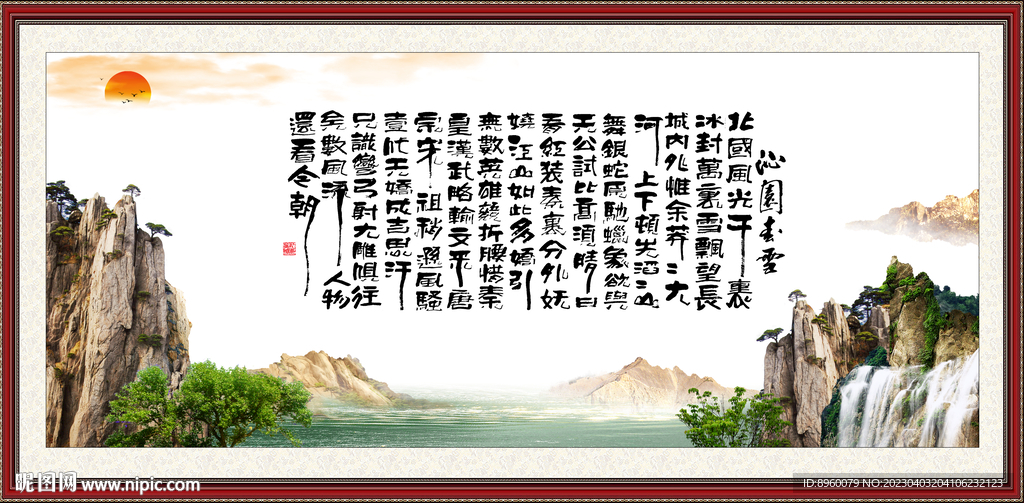 沁園春雪
北國風光千裏
冰封萬裏雪飄望長
城內外惟余莽〻大
河上下頓失滔〻山
舞銀蛇原馳蠟象欲與
天公試比高須晴日
看紅裝素裹分外妖
嬈江山如此多嬌引
無數英雄競折腰惜秦
皇漢武略輸文采唐
宗宋祖稍遜風騷
壹代天驕成吉思汗
只識彎弓射大雕俱往
矣數風流人物
還看今朝
昵图网 www.nipic.com
ID:8960079 NO:20230403204106232123